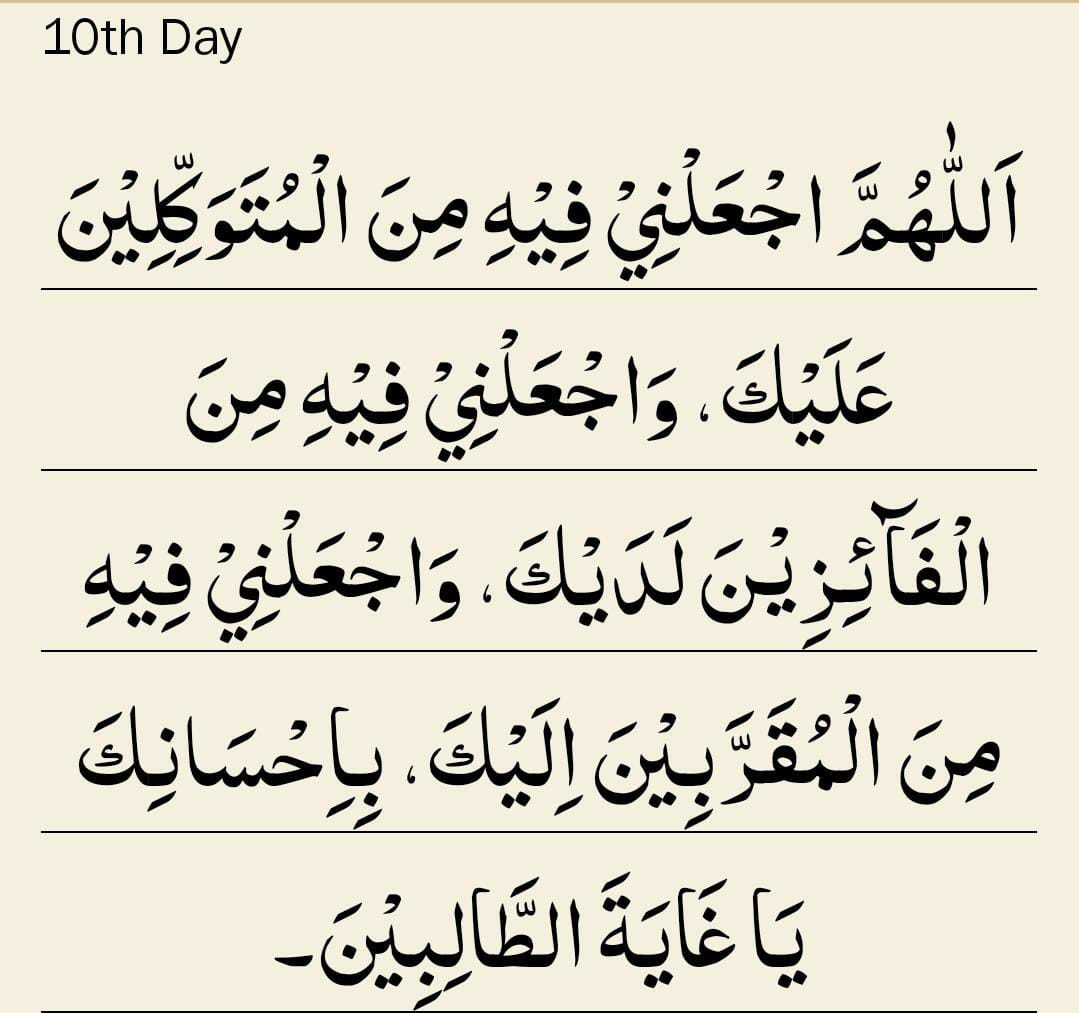 10th Day
اَللّٰهُمَّ اجْعَلْنِيْ فِيْهِ مِنَ الْمُتَوَكِّلِيْنَ
عَلَيْكَ، وَاجْعَلْنِيْ فِيْهِ مِنَ
الْفَآئِزِيْنَ لَدَيْكَ، وَاجْعَلْنِيْ فِيْهِ
مِنَ الْمُقَرَّبِيْنَ اِلَيْكَ، بِاِحْسَانِكَ
يَا غَايَةَ الطَّالِبِيْنَ۔